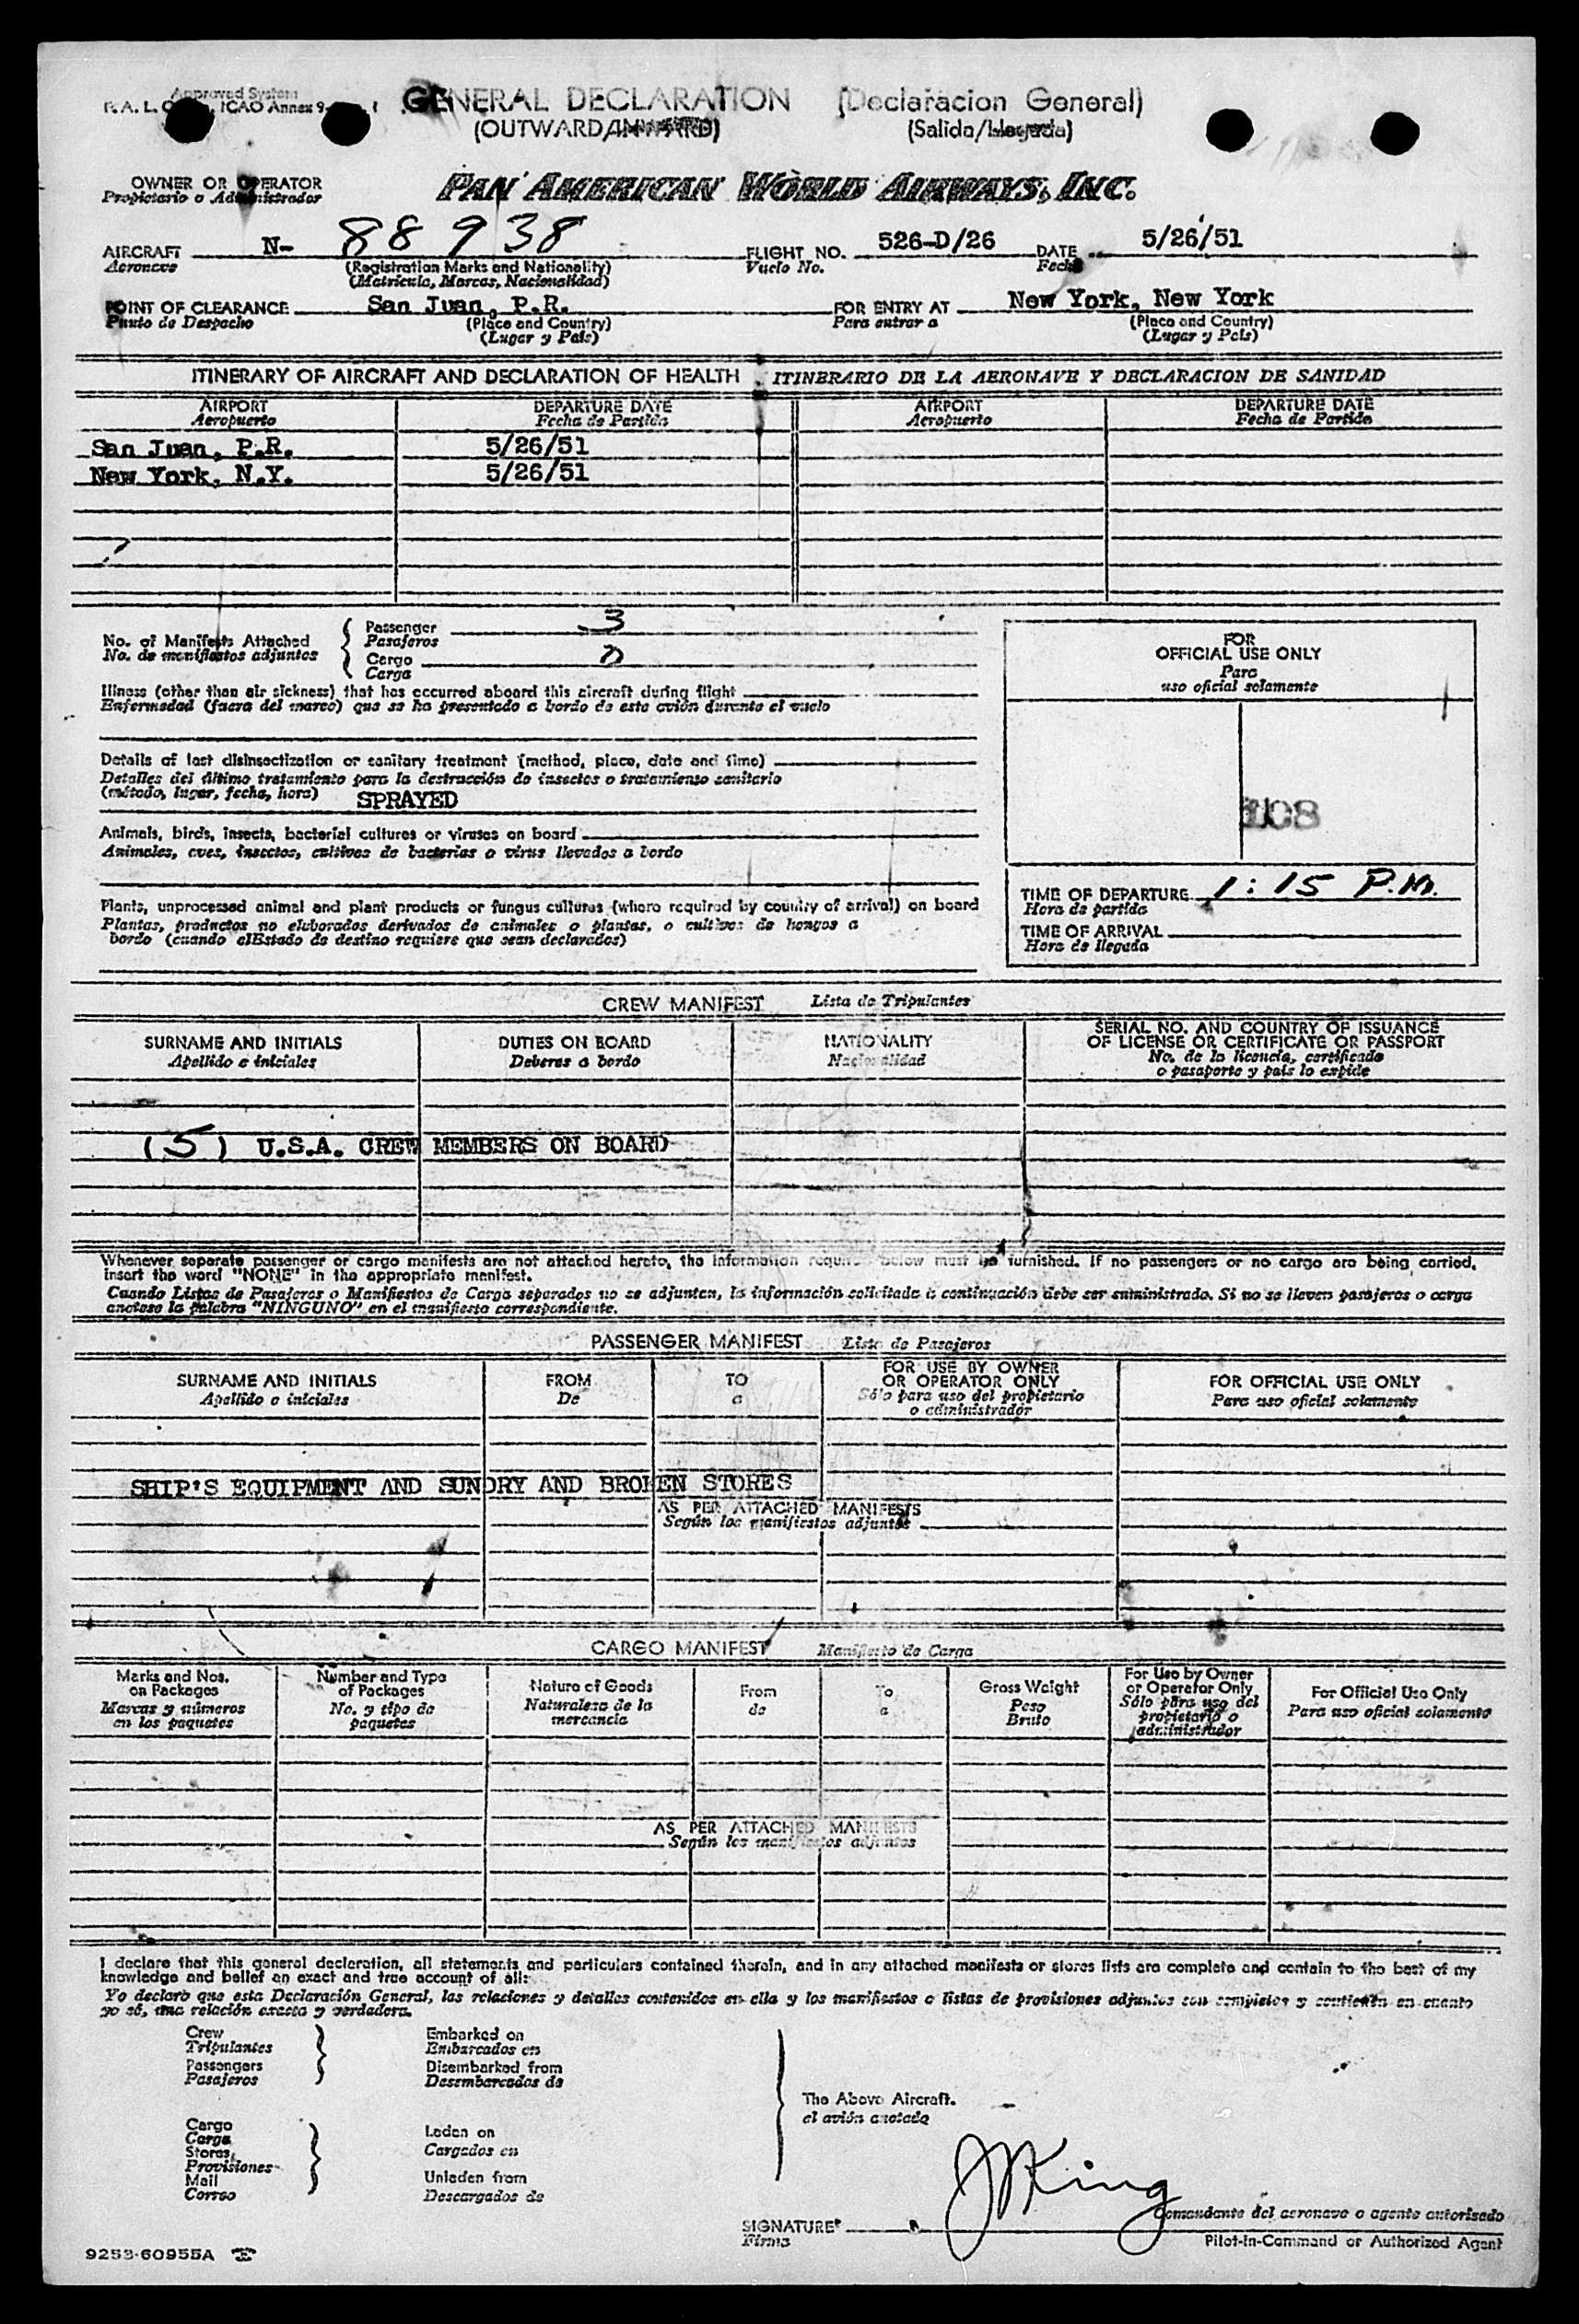 Approved System
GENERAL DECLARATION (Declaracion General)
(OUTWARD/INWARD) (Salida/Llegada)
OWNER OR OPERATOR
Propietario o Administrador
PAN AMERICAN WORLD AIRWAYS, INC.
AIRCRAFT N- 88938 FLIGHT NO. 526-D/26 DATE 5/26/51
Aeronave (Registration Marks and Nationality) Vuelo No. Fecha
(Matricula, Marcas, Nacionalidad)
POINT OF CLEARANCE San Juan, P.R. FOR ENTRY AT New York, New York
Punto de Despacho (Place and Country) Para entrar a (Place and Country)
(Lugar y País) (Lugar y País)
ITINERARY OF AIRCRAFT AND DECLARATION OF HEALTH ITINERARIO DE LA AERONAVE Y DECLARACION DE SANIDAD
AIRPORT DEPARTURE DATE AIRPORT DEPARTURE DATE
Aeropuerto Fecha de Partida Aeropuerto Fecha de Partida
San Juan, P.R. 5/26/51
New York, N.Y. 5/26/51
No. of Manifests Attached
No. de manifiestos adjuntos
Passenger 3
Pasajeros
Cargo
Carga
FOR
OFFICIAL USE ONLY
Para
uso oficial solamente
Illness (other than air sickness) that has occurred aboard this aircraft during flight
Enfermedad (fuera del mareo) que se ha presentado a bordo de este avión durante el vuelo
Details of last disinsectization or sanitary treatment (method, place, date and time)
Detalles del último tratamiento para la destrucción de insectos o tratamiento sanitario
(método, lugar, fecha, hora) SPRAYED
Animals, birds, insects, bacterial cultures or viruses on board
Animales, aves, insectos, cultivos de bacterias o virus llevados a bordo
Plants, unprocessed animal and plant products or fungus cultures (where required by country of arrival) on board
Plantas, productos no elaborados derivados de animales o plantas, o cultivos de hongos a
bordo (cuando elEstado de destino requiere que sean declarados)
TIME OF DEPARTURE 1:15 P.M.
Hora de partida
TIME OF ARRIVAL
Hora de llegada
CREW MANIFEST Lista de Tripulantes
SURNAME AND INITIALS DUTIES ON BOARD NATIONALITY SERIAL NO. AND COUNTRY OF ISSUANCE
OF LICENSE OR CERTIFICATE OR PASSPORT
Apellido e iniciales Deberes a bordo Nacionalidad No. de la licencia, certificado
o pasaporte y país lo expide
(5) U.S.A. CREW MEMBERS ON BOARD
Whenever separate passenger or cargo manifests are not attached hereto, the information required below must be furnished. If no passengers or no cargo are being carried,
insert the word "NONE" in the appropriate manifest.
Cuando Listas de Pasajeros o Manifiestos de Carga separados no se adjuntan, la información solicitada a continuación debe ser suministrada. Si no se lleven pasajeros o carga
anotese la palabra "NINGUNO" en el manifiesto correspondiente.
PASSENGER MANIFEST Lista de Pasajeros
SURNAME AND INITIALS FROM TO FOR USE BY OWNER
OR OPERATOR ONLY FOR OFFICIAL USE ONLY
Apellido o iniciales De a Sólo para uso del propietario
o administrador Para uso oficial solamente
SHIP'S EQUIPMENT AND SUNDRY AND BROKEN STORES
AS PER ATTACHED MANIFESTS
Según los manifiestos adjuntos
CARGO MANIFEST Manifiesto de Carga
Marks and Nos.
on Packages
Marcas y números
en los paquetes
Number and Type
of Packages
No. y tipo de
paquetes
Nature of Goods
Naturaleza de la
mercancia
From
de
To
a
Gross Weight
Peso
Bruto
For Use by Owner
or Operator Only
Sólo para uso del
propietario o
administrador
For Official Use Only
Para uso oficial solamente
AS PER ATTACHED MANIFESTS
Según los manifiestos adjuntos
I declare that this general declaration, all statements and particulars contained therein, and in any attached manifests or stores lists are complete and contain to the best of my
knowledge and belief an exact and true account of all:
Yo declaro que esta Declaración General, las relaciones y detalles contenidos en ella y los manifiestos o listas de provisiones adjuntos son completos y contienen en cuanto
yo sé, una relación exacta y verdadera.
Crew
Tripulantes
Passengers
Pasajeros
Embarked on
Embarcados en
Disembarked from
Desembarcados de
Cargo
Carga
Stores
Provisiones
Mail
Correo
Laden on
Cargados en
Unladen from
Descargados de
The Above Aircraft.
el avión anotado
SIGNATURE JRKing
Firma
Comandante del aeronave o agente autorisado
Pilot-in-Command or Authorized Agent
9253-60955A